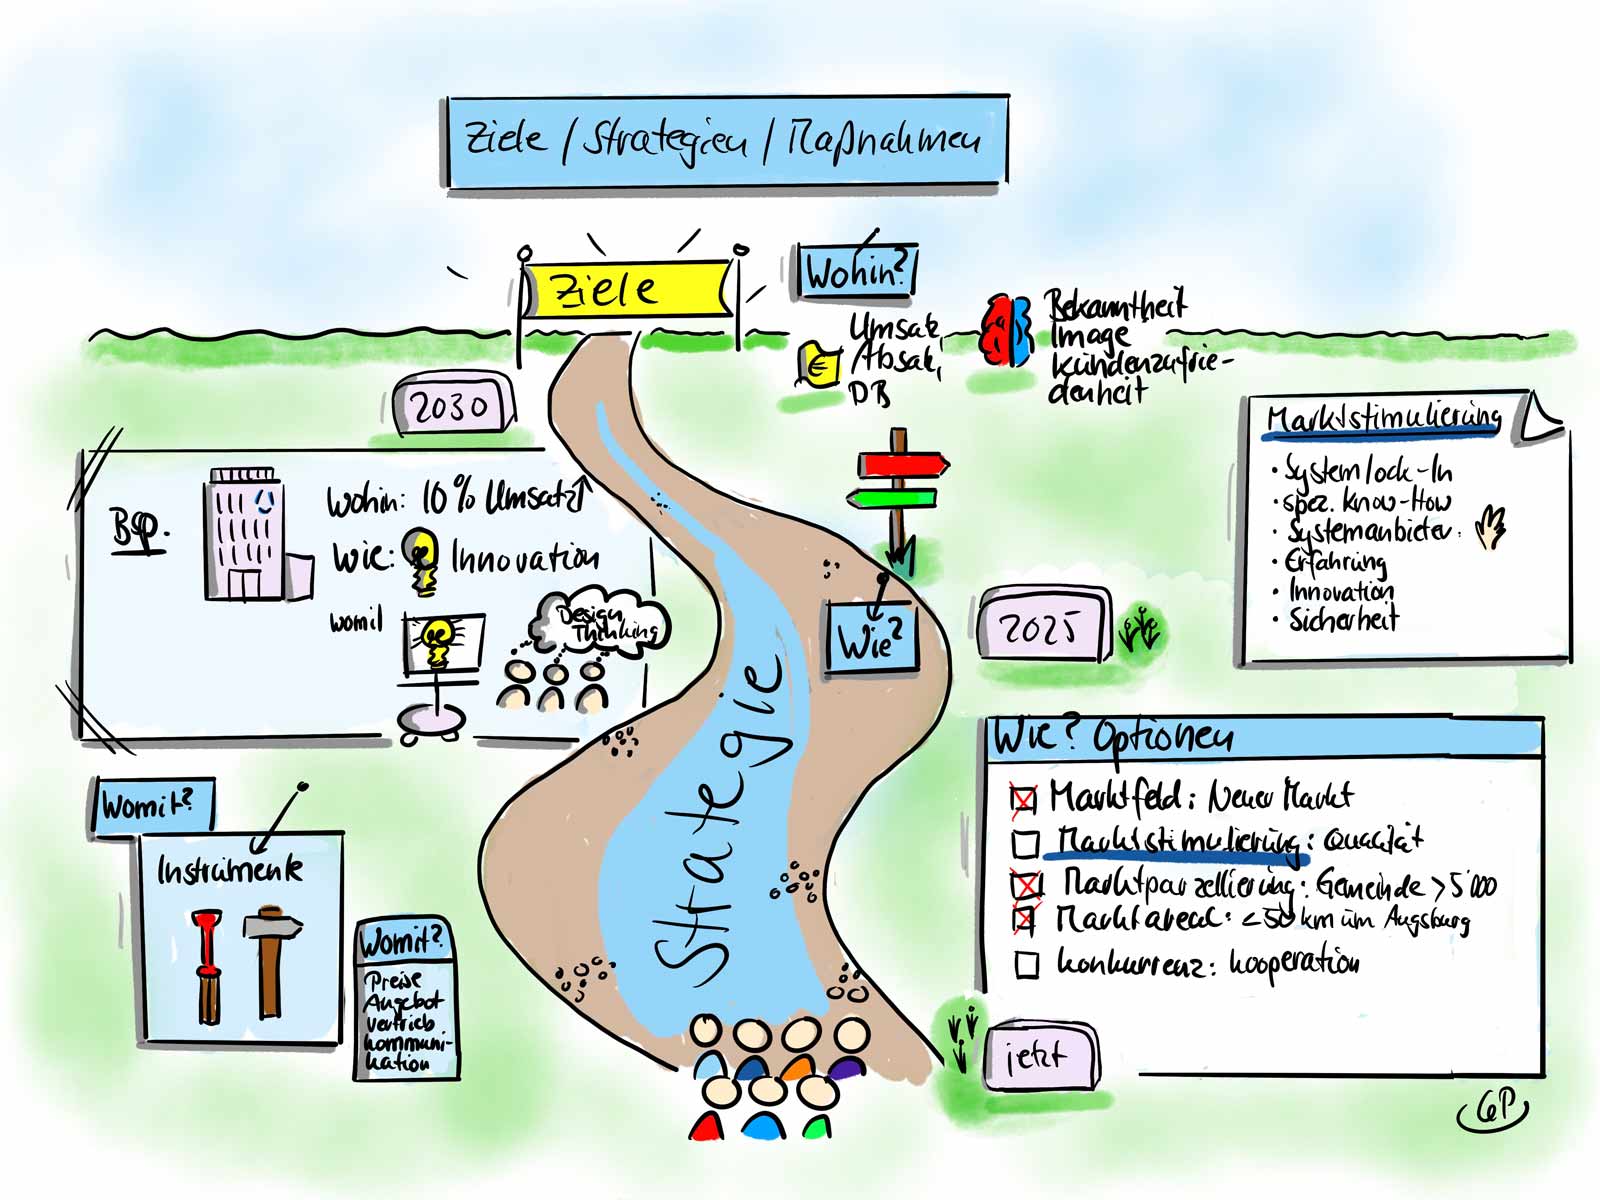 Ziele / Strategien / Maßnahmen
Ziele
Wohin?
Umsatz,
Absatz,
DB
Bekanntheit
Image
Kundenzufrie-
denheit
2030
Bsp.
Wohin: 10% Umsatz↑
Wie: Innovation
womit
Design
Thinking
Marktstimulierung
• System lock-In
• spez. Know-How
• Systemanbieter
• Erfahrung
• Innovation
• Sicherheit
Wie?
2025
Strategie
Wie? Optionen
Marktfeld: Neuer Markt
Marktstimulierung: Qualität
Marktparzellierung: Gemeinde > 5'000
Marktareal: < 50 km um Augsburg
Konkurrenz: Kooperation
Womit?
Instrumente
Womit?
Preise
Angebot
Vertrieb
Kommuni-
kation
jetzt
GP